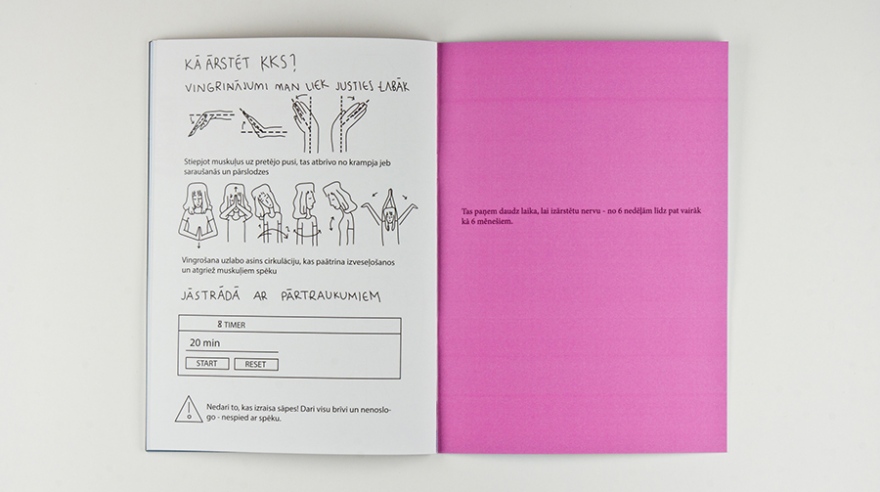 KĀ ĀRSTĒT KKS?
VINGRINĀJUMI MAN LIEK JUSTIES LABĀK
Stiepjot muskuļus uz pretējo pusi, tas atbrīvo no krampja jeb
saraušanās un pārslodzes
Vingrošana uzlabo asins cirkulāciju, kas paātrina izveseļošanos
un atgriež muskuļiem spēku
JĀSTRĀDĀ AR PĀRTRAUKUMIEM
8 TIMER
20 min
START RESET
Nedari to, kas izraisa sāpes! Dari visu brīvi un nenoslo-
go - nespied ar spēku.
Tas paņem daudz laika, lai izārstētu nervu - no 6 nedēļām līdz pat vairāk
kā 6 mēnešiem.